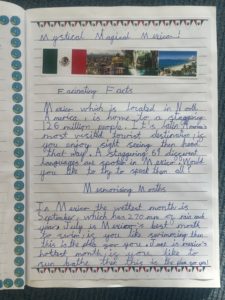 Mystical Magical Mexico!
Facinating Facts
Mexico which is located in North
America, is home to a stagging
126 million people. It's latin America's
most visited tourist destination is
you enjoy sight seeing then head
that way. A staggering 68 discount
languages are spoken in Mexico. Would
you like to try to speak them all?
Memorising Months
In Mexico the wettest month is
September, which has 270 mm of rain and
years July is Mexico's best month
to swim is you like swimming then
this is the place for you. June is mexico's
hottest month is you like to
sun bathe that this is the place for you!